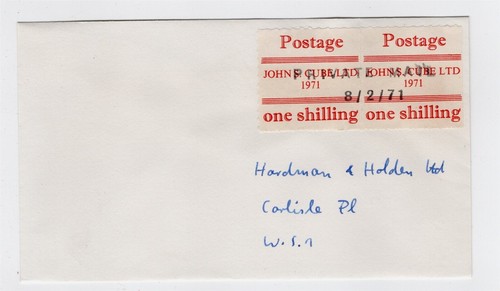 Postage Postage
JOHN S. CUBE LTD JOHN S. CUBE LTD
PRIVATE MAIL
1971 1971
8/2/71
one shilling one shilling
Hardman & Holden Ltd
Carlisle Pl
W.S.1